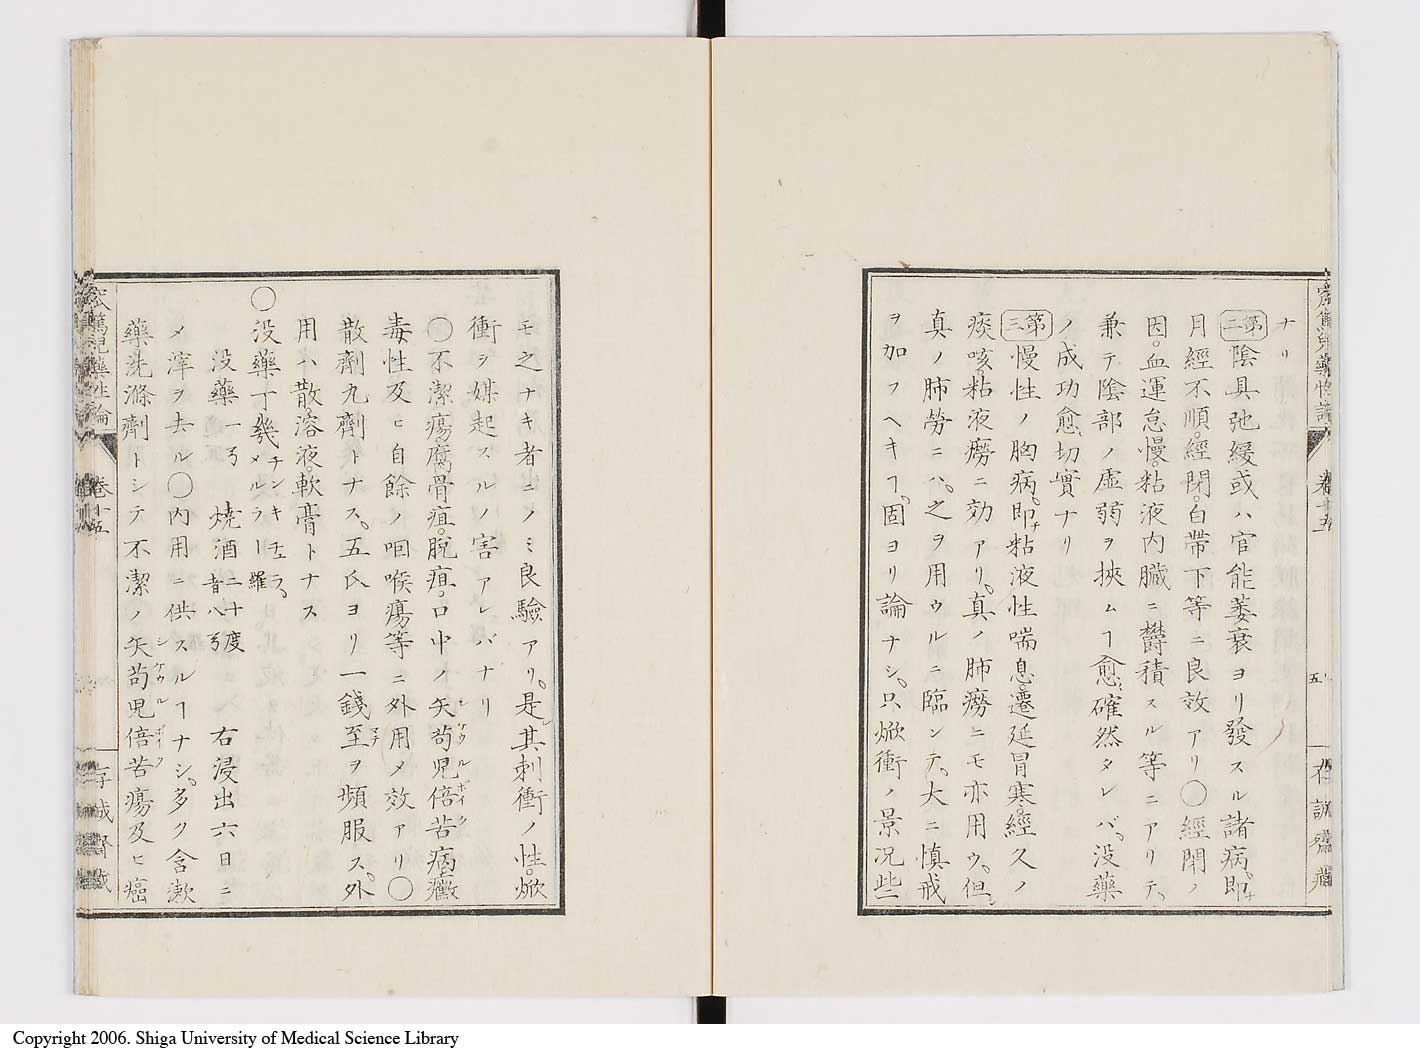 ナリ
第二 陰具弛緩或ハ官能萎衰ヨリ發スル諸病。即チ
月經不順。經閉。白帶下等ニ良效アリ〇經閉ノ
因。血運怠慢。粘液内臓ニ欝積スル等ニアリテ、
兼テ陰部ノ虚弱ヲ挾ムヿ愈確然タレバ、没藥
ノ成功愈切實ナリ
第三 慢性ノ胸病。即チ粘液性喘息遷延冒寒。經久ノ
痰咳。粘液癆ニ効アリ。真ノ肺癆ニモ亦用ウ。但シ
真ノ肺勞ニハ、之ヲ用ウルニ臨ンテ、大ニ慎戒
ヲ加フヘキヿ。固ヨリ論ナシ。只焮衝ノ景况些
モ之ナキ者ニノミ良驗アリ。是レ其刺衝ノ性。焮
衝ヲ媒起スルノ害アレバナリ
〇不潔瘍腐骨疽。脱疽。口中ノ矢苟児倍苦病黴
シケウルボイク
毒性及ヒ自餘ノ咽喉瘍等ニ外用メ效アリ〇
散劑丸劑トナス。五氏ヨリ一錢至ヲ頻服ス。外
マテ
用ハ散。溶液。軟膏トナス
〇没藥丁幾チンキチュラ、メルラー羅
没藥一ゟ 燒酒二十度者八ゟ 右浸出六日ニ
メ滓ヲ去ル〇内用ニ供スルヿナシ。多ク含漱
藥洗滌劑トシテ不潔ノ矢苟児倍苦瘍及ヒ癌
シケウルボイク
窊篤児藥性論 卷十五
五
存誠齋藏
窊篤児藥性論
卷十五
存誠齋藏
Copyright 2006. Shiga University of Medical Science Library